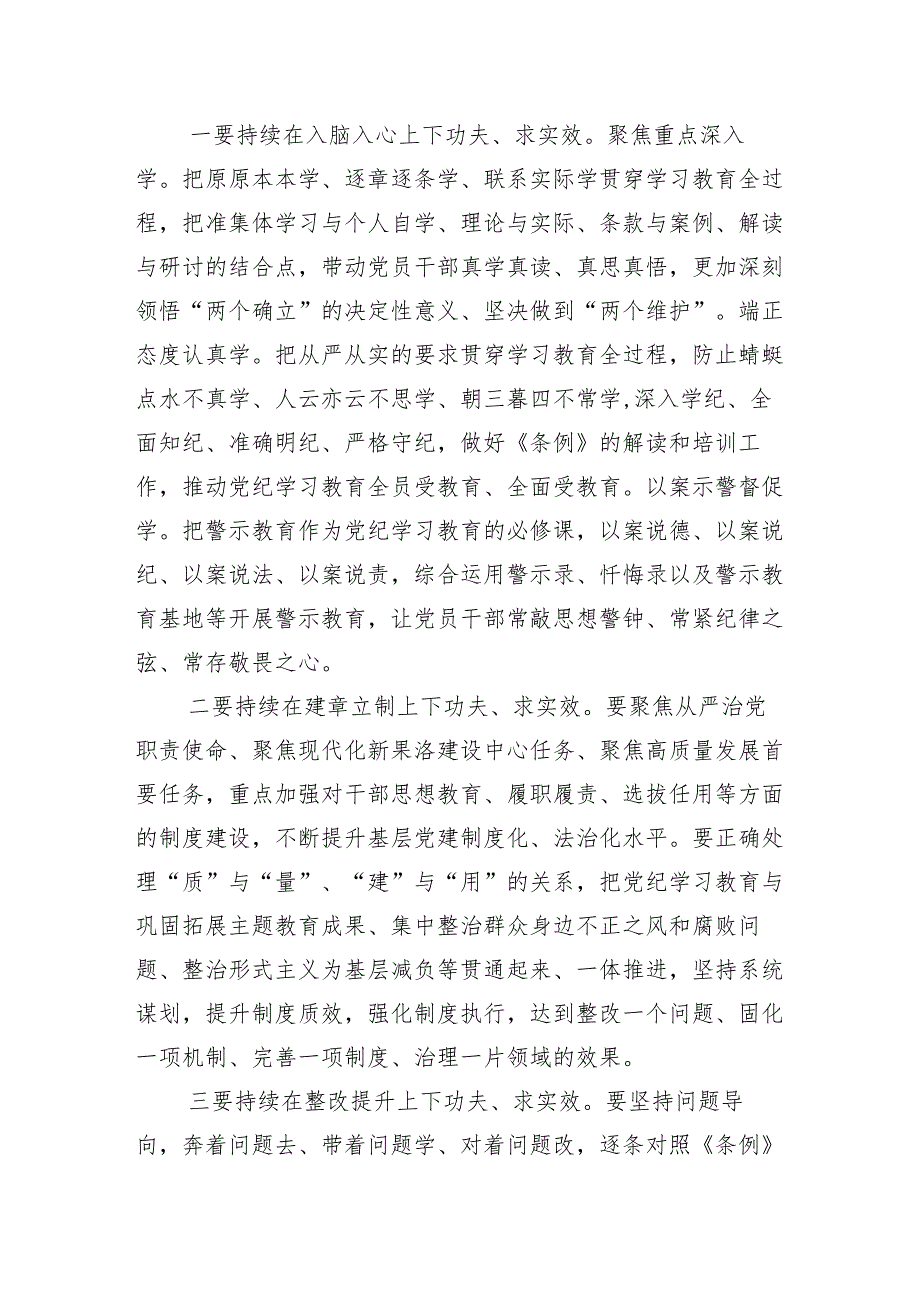 一要持续在入脑入心上下功夫、求实效。聚焦重点深入
学。把原原本本学、逐章逐条学、联系实际学贯穿学习教育全过
程，把准集体学习与个人自学、理论与实际、条款与案例、解读
与研讨的结合点，带动党员干部真学真读、真思真悟，更加深刻
领悟“两个确立”的决定性意义、坚决做到“两个维护”。端正
态度认真学。把从严从实的要求贯穿学习教育全过程，防止蜻蜓
点水不真学、人云亦云不思学、朝三暮四不常学,深入学纪、全
面知纪、准确明纪、严格守纪，做好《条例》的解读和培训工
作，推动党纪学习教育全员受教育、全面受教育。以案示警督促
学。把警示教育作为党纪学习教育的必修课，以案说德、以案说
纪、以案说法、以案说责，综合运用警示录、忏悔录以及警示教
育基地等开展警示教育，让党员干部常敲思想警钟、常紧纪律之
弦、常存敬畏之心。
二要持续在建章立制上下功夫、求实效。要聚焦从严治党
职责使命、聚焦现代化新果洛建设中心任务、聚焦高质量发展首
要任务，重点加强对干部思想教育、履职履责、选拔任用等方面
的制度建设，不断提升基层党建制度化、法治化水平。要正确处
理“质”与“量”、“建”与“用”的关系，把党纪学习教育与
巩固拓展主题教育成果、集中整治群众身边不正之风和腐败问
题、整治形式主义为基层减负等贯通起来、一体推进，坚持系统
谋划，提升制度质效，强化制度执行，达到整改一个问题、固化
一项机制、完善一项制度、治理一片领域的效果。
三要持续在整改提升上下功夫、求实效。要坚持问题导
向，奔着问题去、带着问题学、对着问题改，逐条对照《条例》